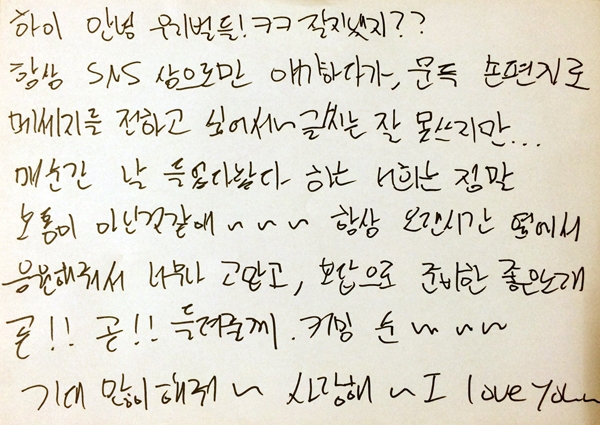 하이 안녕 우리벌들! ㅋㅋ 잘지냈지??
항상 SNS 상으로만 얘기하다가, 문득 손편지로
메세지를 전하고 싶어서~ 글씨는 잘 못쓰지만...
매순간 날 들었다놨다 하는 너희는 정말
보통이 아닌것같애 ~ ~ ~ 항상 오랜시간 옆에서
응원해줘서 너무나 고맙고, 보답으로 준비한 좋은노래
곧!! 곧!! 들려줄께. 커밍 순 ~ ~ ~
기대 많이 해줘 ~ 사랑해 ~ I love you~